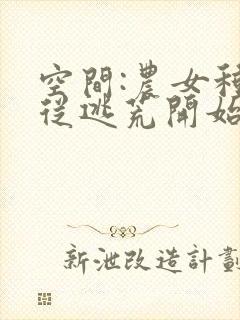 空間:農女種
從逃荒開始
新泄改造計劃